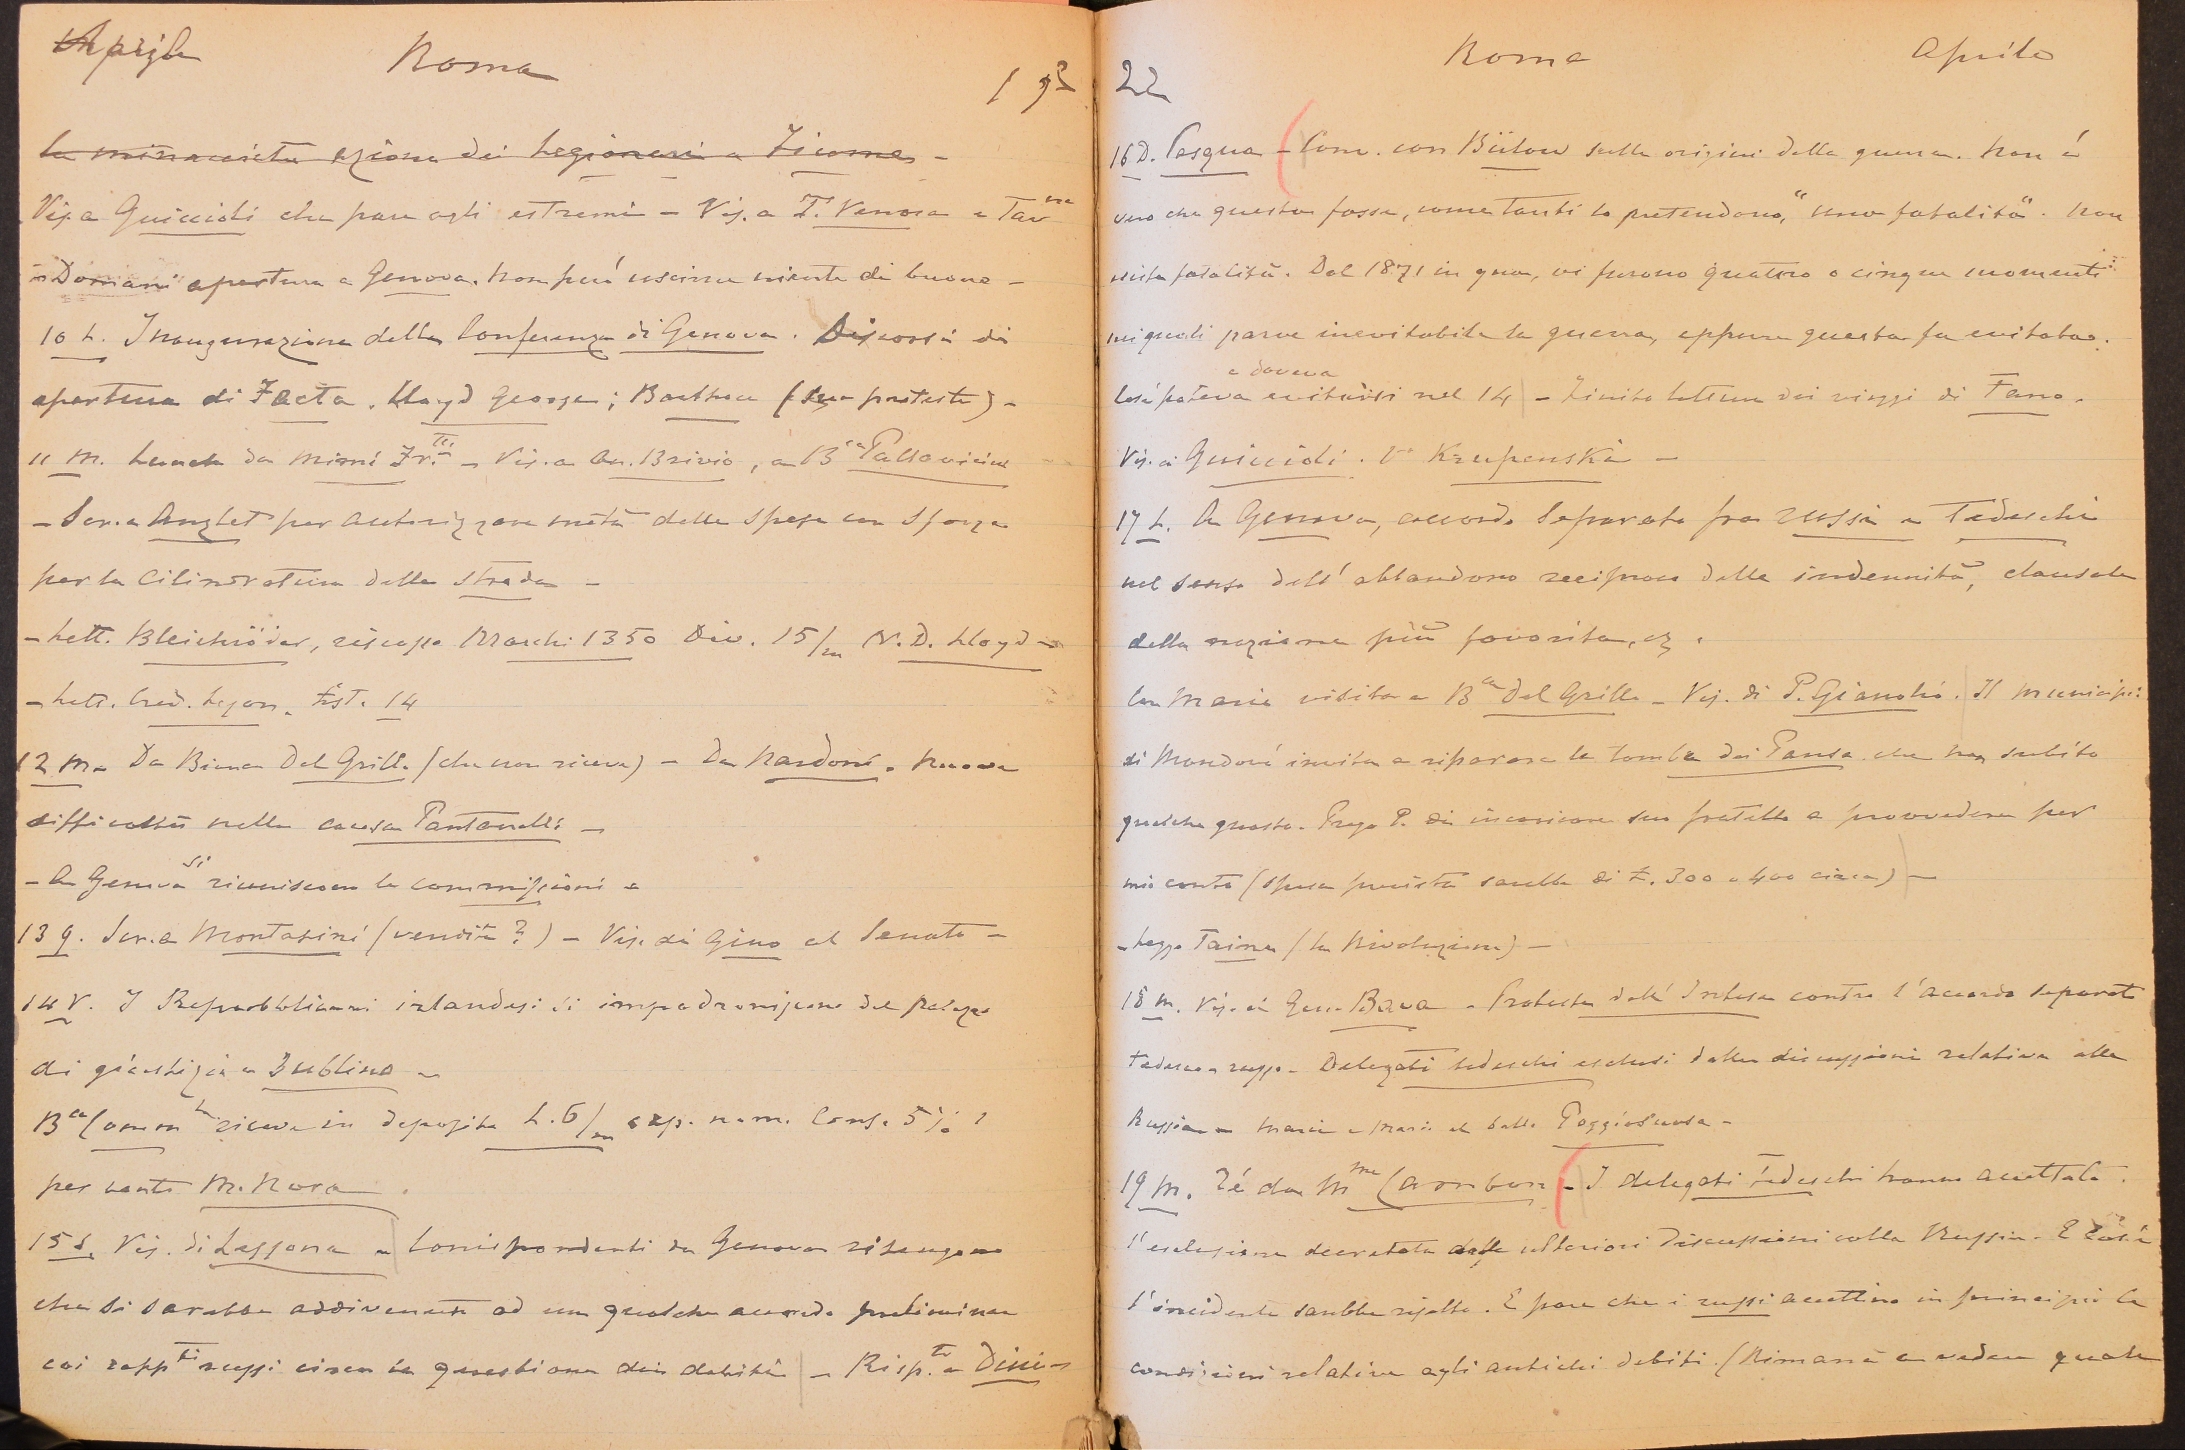 Aprile Roma 19
la minacciata azione dei Legionari a Fiume -
Vis. a Guiccioli che pare agli estremi - Vis. a T. Venosa e
- Domani apertura a Genova. Non può uscirne niente di buono -
10 L. Inaugurazione della Conferenza di Genova. Discorsi di
apertura di Facta, Lloyd George; Barthou (sua protesta) -
11 M. Lunch da Mimì - Vis. a An. Brivio, a Bssa Pallavicini
- Scr. a Anglet per autorizzare metà della spesa con Sforza
per la cilindratura della strada -
- Lett. Bleichröder, riscosse Marchi 1350 Div. 15/m N. D. Lloyd -
- Lett. Cred. Lyon. Est. 14
12 M. Da Bianca Del Grillo (che non riceve) - Da Nardoni. Nuove
difficoltà nella causa Pantanelli -
- A Genova si riuniscono le commissioni -
13 G. Scr. a Montasini (vendita?) - Vis. di Gino al Senato -
14 V. I Repubblicani irlandesi si impadroniscono del palazzo
di giustizia a Dublino -
Bca Comm riceve in deposito L. 6/m cap. nom. Cons. 5%
per conto M. Nora
15 S. Vis. di Lessona - Corrispondenti da Genova ritengono
che si sarebbe addivenuti ad un qualche accordo preliminare
coi rappti russi circa la questione dei debiti - Risp. a Dini -
22 Roma Aprile
16 D. Pasqua - Conv. con Bülow sulle origini della guerra. Non è
vero che questa fosse, come tanti lo pretendono, "una fatalità". Non
esiste fatalità. Dal 1871 in qua, vi furono quattro o cinque momenti
nei quali parve inevitabile la guerra, eppure questa fu evitata.
e doveva
Così poteva evitarsi nel 14 - Finita lettura dei viaggi di Fano.
Vis. di Guiccioli. Va Krupenski -
17 L. A Genova, accordo separato fra russi e Tedeschi
nel senso dell'abbandono reciproco delle indennità, clausola
della nazione più favorita, ec.
Con Maria visita a Bca Del Grillo - Vis. di P. Gianolio. Il municipio
di Mondovì invita a riparare la tomba dei Pansa che ha subìto
qualche guasto. Prego P. di incaricare suo fratello a provvedere per
mio conto (spesa prevista sarebbe di £. 300 o 400 circa) -
- Leggo Taine (La Rivoluzione) -
18 M. Vis. di Gen. Bava - Protesta dell'Intesa contro l'accordo separato
tedesco-russo - Delegati tedeschi esclusi dalle discussioni relative alla
Russia - Maria e Mario al ballo Poggiosuasa -
19 M. Té da Mme Cambon - I delegati tedeschi hanno accettato
l'esclusione decretata dalle ulteriori discussioni colla Russia. E così
l'incidente sarebbe risolto. E pare che i russi accettino in principio le
condizioni relative agli antichi debiti. (Rimarrà a vedere quale